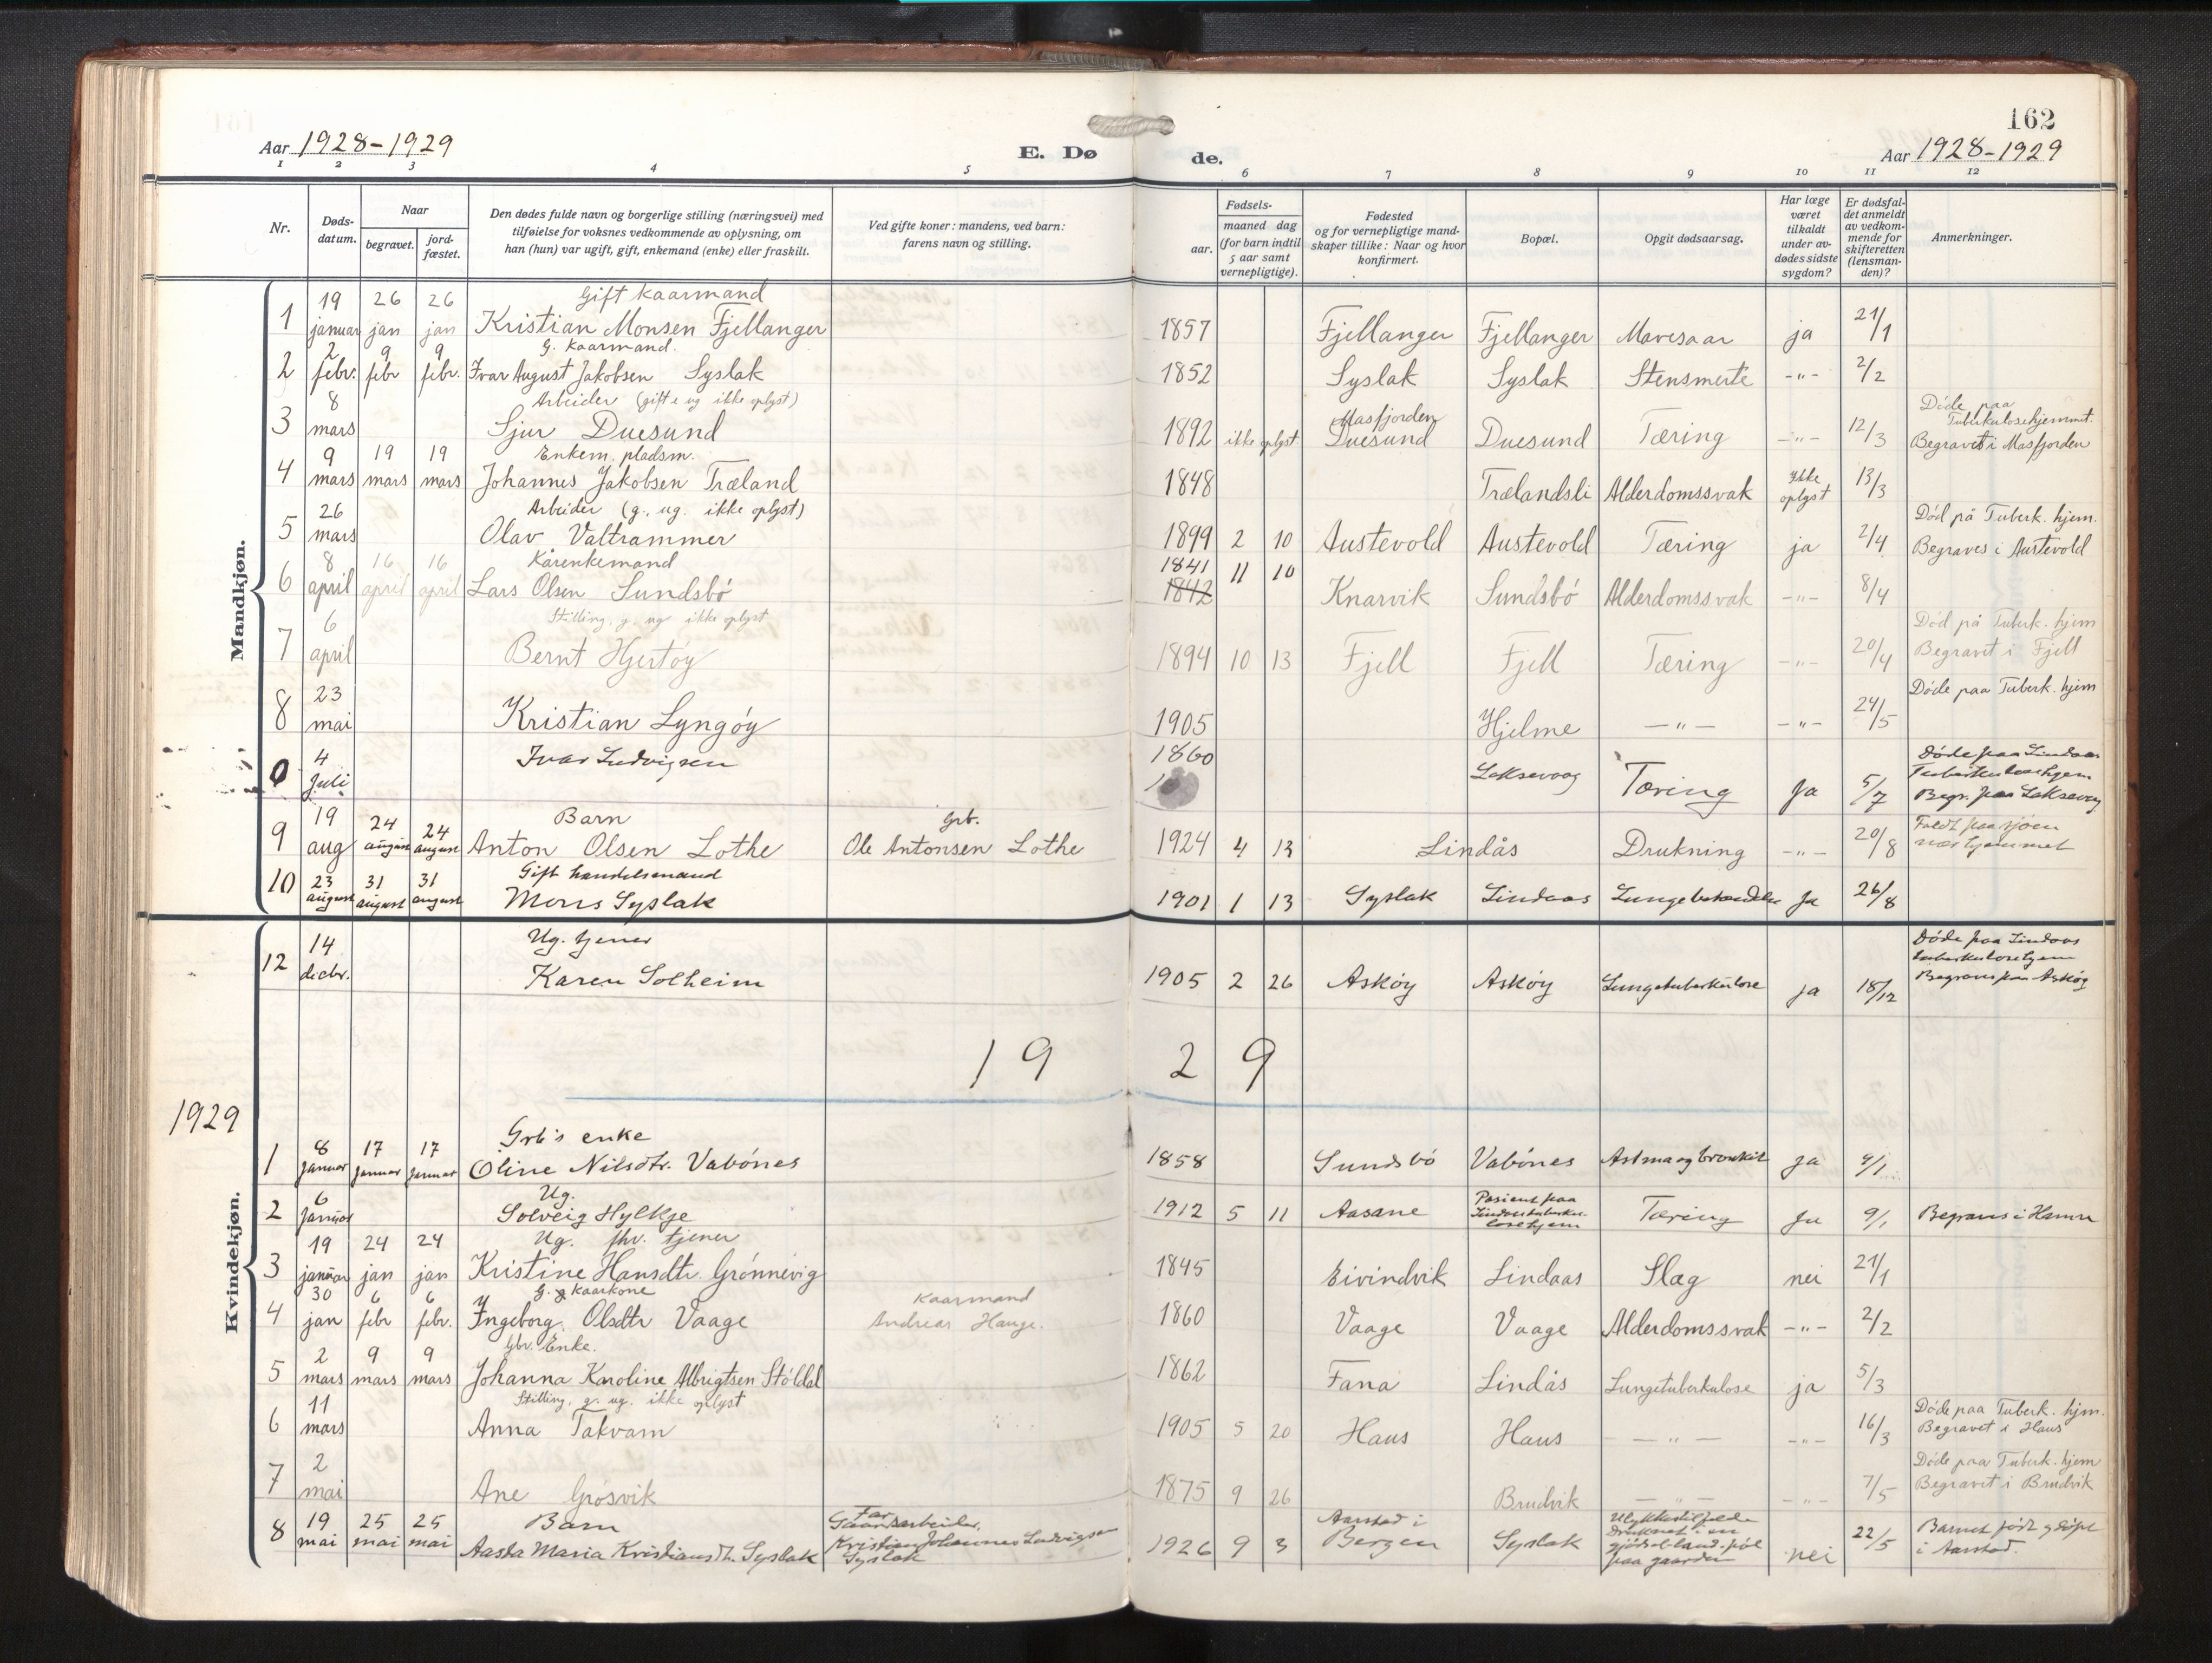 162
Aar 1928-1929
E. Dø
de.
Aar 1928-1929
1 2 3 4 5 6 7 8 9 10 11 12
Nr.
Døds-
datum.
Naar
begravet.
jord-
fæstet.
Den dødes fulde navn og borgerlige stilling (næringsvei) med
tilføielse for voksnes vedkommende av oplysning, om
han (hun) var ugift, gift, enkemand (enke) eller fraskilt.
Ved gifte koner: mandens, ved barn:
farens navn og stilling.
Fødsels-
aar.
maaned dag
(for barn indtil
5 aar samt
vernepligtige).
Fødested
og for vernepligtige mand-
skaper tillike: Naar og hvor
konfirmert.
Bopæl.
Opgit dødsaarsag.
Har læge
været
tilkaldt
under av-
dødes sidste
sygdom?
Er dødsfal-
det anmeldt
av vedkom-
mende for
skifteretten
(lensman-
den)?
Anmerkninger.
Mandkjøn.
Gift kaarmand
1 19 januar 26 jan 26 jan Kristian Monsen Fjellanger 1857 Fjellanger Fjellanger Mavesaar ja 21/1
G. kaarmand.
2 2 febr. 9 febr 9 febr. Ivar August Jakobsen Syslak 1852 Syslak Syslak Stensmerte -"- 2/2
Arbeider (gift e ug ikke oplyst)
3 8 mars Sjur Duesund 1892 ikke oplyst Masfjorden Duesund Duesund Tæring -"- 12/3 Døde paa Tuberkulosehjemmet. Begravet i Masfjorden
Enkem. pladsm.
4 9 mars 19 mars 19 mars Johannes Jakobsen Træland 1848 Trælandsli Alderdomssvak Ikke oplyst 13/3
Arbeider (g., ug. ikke oplyst)
5 26 mars Olav Valtrammer 1899 2 10 Austevold Austevold Tæring ja 2/4 Død på Tuberk. hjem. Begraves i Austevold
Kårenkemand
6 8 april 16 april 16 april Lars Olsen Sundsbø 1841 1842 11 10 Knarvik Sundsbø Alderdomssvak -"- 8/4
Stilling, g. ug ikke oplyst
7 6 april Bernt Hjertøy 1894 10 13 Fjell Fjell Tæring -"- 20/4 Død på Tuberk. hjem Begravet i Fjell
8 23 mai Kristian Lyngøy 1905 Hjelme -"- -"- 24/5 Døde paa Tuberk. hjem
0 4 Juli Ivar Ludvigsen 1860 Laksevaag Tæring Ja 5/7 Døde paa Lindaas Tuberkulosehjem Begr. paa Laksevag
Barn
9 19 aug 24 august 24 august Anton Olsen Lothe Grb. Ole Antonsen Lothe 1924 4 13 Lindås Drukning -"- 20/8 Faldt paa sjøen nær hjemmet
Gift handelsmand
10 23 august 31 august 31 august Mons Syslak 1901 1 13 Syslak Lindaas Ja 26/8
Kvindekjøn.
Ug. tjener
12 14 decbr. Karen Solheim 1905 2 26 Askøy Askøy Lungetuberkulose ja 18/12 Døde paa Lindaas tuberkulosehjem Begraves paa Askøy
1929
1929
Grb's enke
1 8 Januar 17 Januar 17 Januar Oline Nilsdtr. Vabønes 1858 Sundsbø Vabønes Astma og bronkit Ja 9/1
Ug.
2 6 Januar Solveig Hylkje 1912 5 11 Aasane Pasient paa Lindaas tuberkulosehjem Tæring Ja 9/1 Begraves i Hamre
Ug. fhv. tjener
3 19 januar 24 jan 24 jan Kristine Hansdtr. Grønnevig 1845 Eivindvik Lindaas Slag nei 21/1
G. kaarkone
4 30 jan 6 febr 6 febr. Ingeborg Olsdtr Vaage Kaarmand Andreas Hauge. 1860 Vaage Vaage Alderdomssvak -"- 2/2
Gbr. Enke.
5 2 mars 9 mars 9 mars Johanna Karoline Albrigtsen Støldal 1862 Fana Lindås Lungetuberkulose ja 5/3
Stilling, g. ug. ikke oplyst
6 11 mars Anna Takvam 1905 5 20 Haus Haus -"- -"- 16/3 Døde paa Tuberk. hjm. Begravet i Haus
7 2 mai Ane Grøsvik 1875 9 26 Brudvik -"- -"- 7/5 Døde paa Tuberk. hjem Begravet i Brudvik
Barn
8 19 mai 25 mai 25 mai Aasta Maria Kristiansdtr. Syslak Far Gaardsarbeider, Kristian Johannes Ludvigsen Syslak 1926 9 3 Aarstad i Bergen Syslak Ulykkestilfelde druknet i en paa gaarden nei 22/5 Barnet født og døpt i Aarstad.